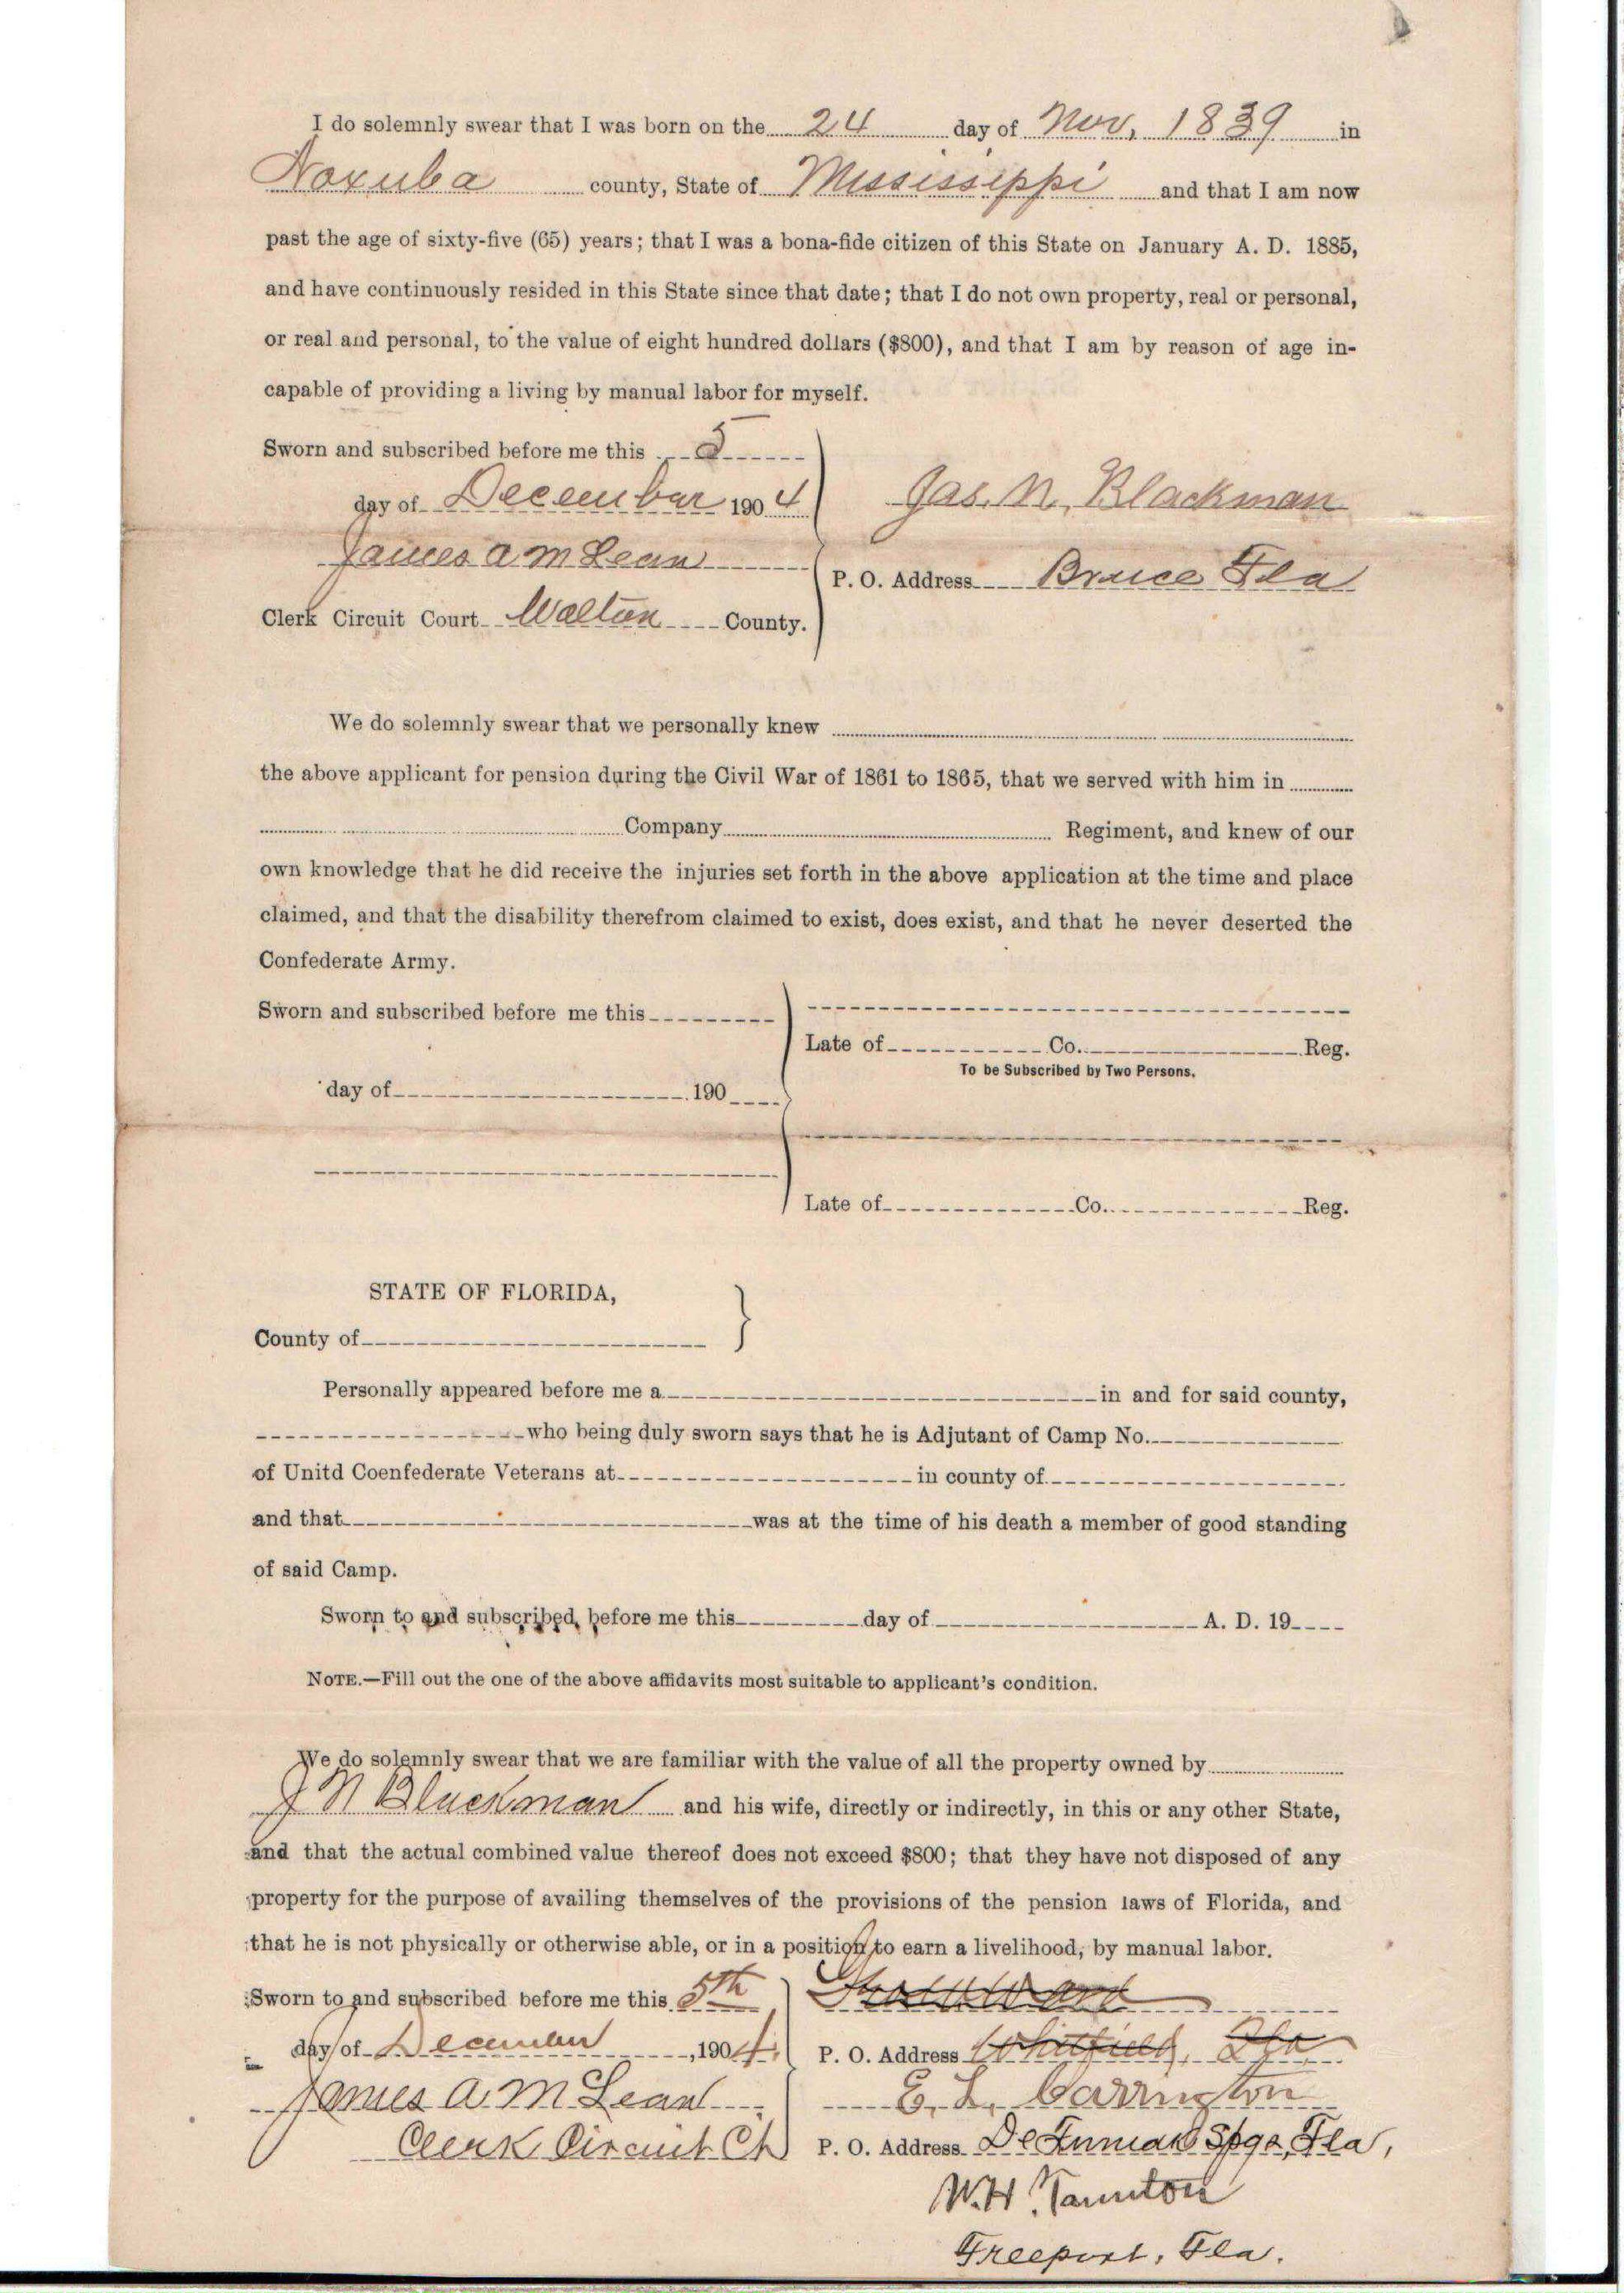 I do solemnly swear that I was born on the 24 day of Nov. 1839 in
Noxuba county, State of Mississippi and that I am now
past the age of sixty-five (65) years; that I was a bona-fide citizen of this State on January A. D. 1885,
and have continuously resided in this State since that date; that I do not own property, real or personal,
or real and personal, to the value of eight hundred dollars ($800), and that I am by reason of age in-
capable of providing a living by manual labor for myself.
Sworn and subscribed before me this 5
day of December 1904 Jas. N. Blackman
James A McLean
P. O. Address Bruce Fla
Clerk Circuit Court Walton County.
We do solemnly swear that we personally knew
the above applicant for pension during the Civil War of 1861 to 1865, that we served with him in
Company Regiment, and knew of our
own knowledge that he did receive the injuries set forth in the above application at the time and place
claimed, and that the disability therefrom claimed to exist, does exist, and that he never deserted the
Confederate Army.
Sworn and subscribed before me this
Late of Co. Reg.
To be Subscribed by Two Persons.
day of 190
Late of Co. Reg.
STATE OF FLORIDA,
County of
Personally appeared before me a in and for said county,
who being duly sworn says that he is Adjutant of Camp No.
of Unitd Coenfederate Veterans at in county of
and that was at the time of his death a member of good standing
of said Camp.
Sworn to and subscribed, before me this day of A. D. 19
NOTE.—Fill out the one of the above affidavits most suitable to applicant's condition.
We do solemnly swear that we are familiar with the value of all the property owned by
J N Blackman and his wife, directly or indirectly, in this or any other State,
and that the actual combined value thereof does not exceed $800; that they have not disposed of any
property for the purpose of availing themselves of the provisions of the pension laws of Florida, and
that he is not physically or otherwise able, or in a position to earn a livelihood, by manual labor.
Sworn to and subscribed before me this 5th
day of December, 1904. P. O. Address Whitfield, Fla
James A. McLean E. L. Carrington
Clerk Circuit Ct P. O. Address De Funiak Spgs, Fla,
W. H. Taunton
Freeport, Fla.